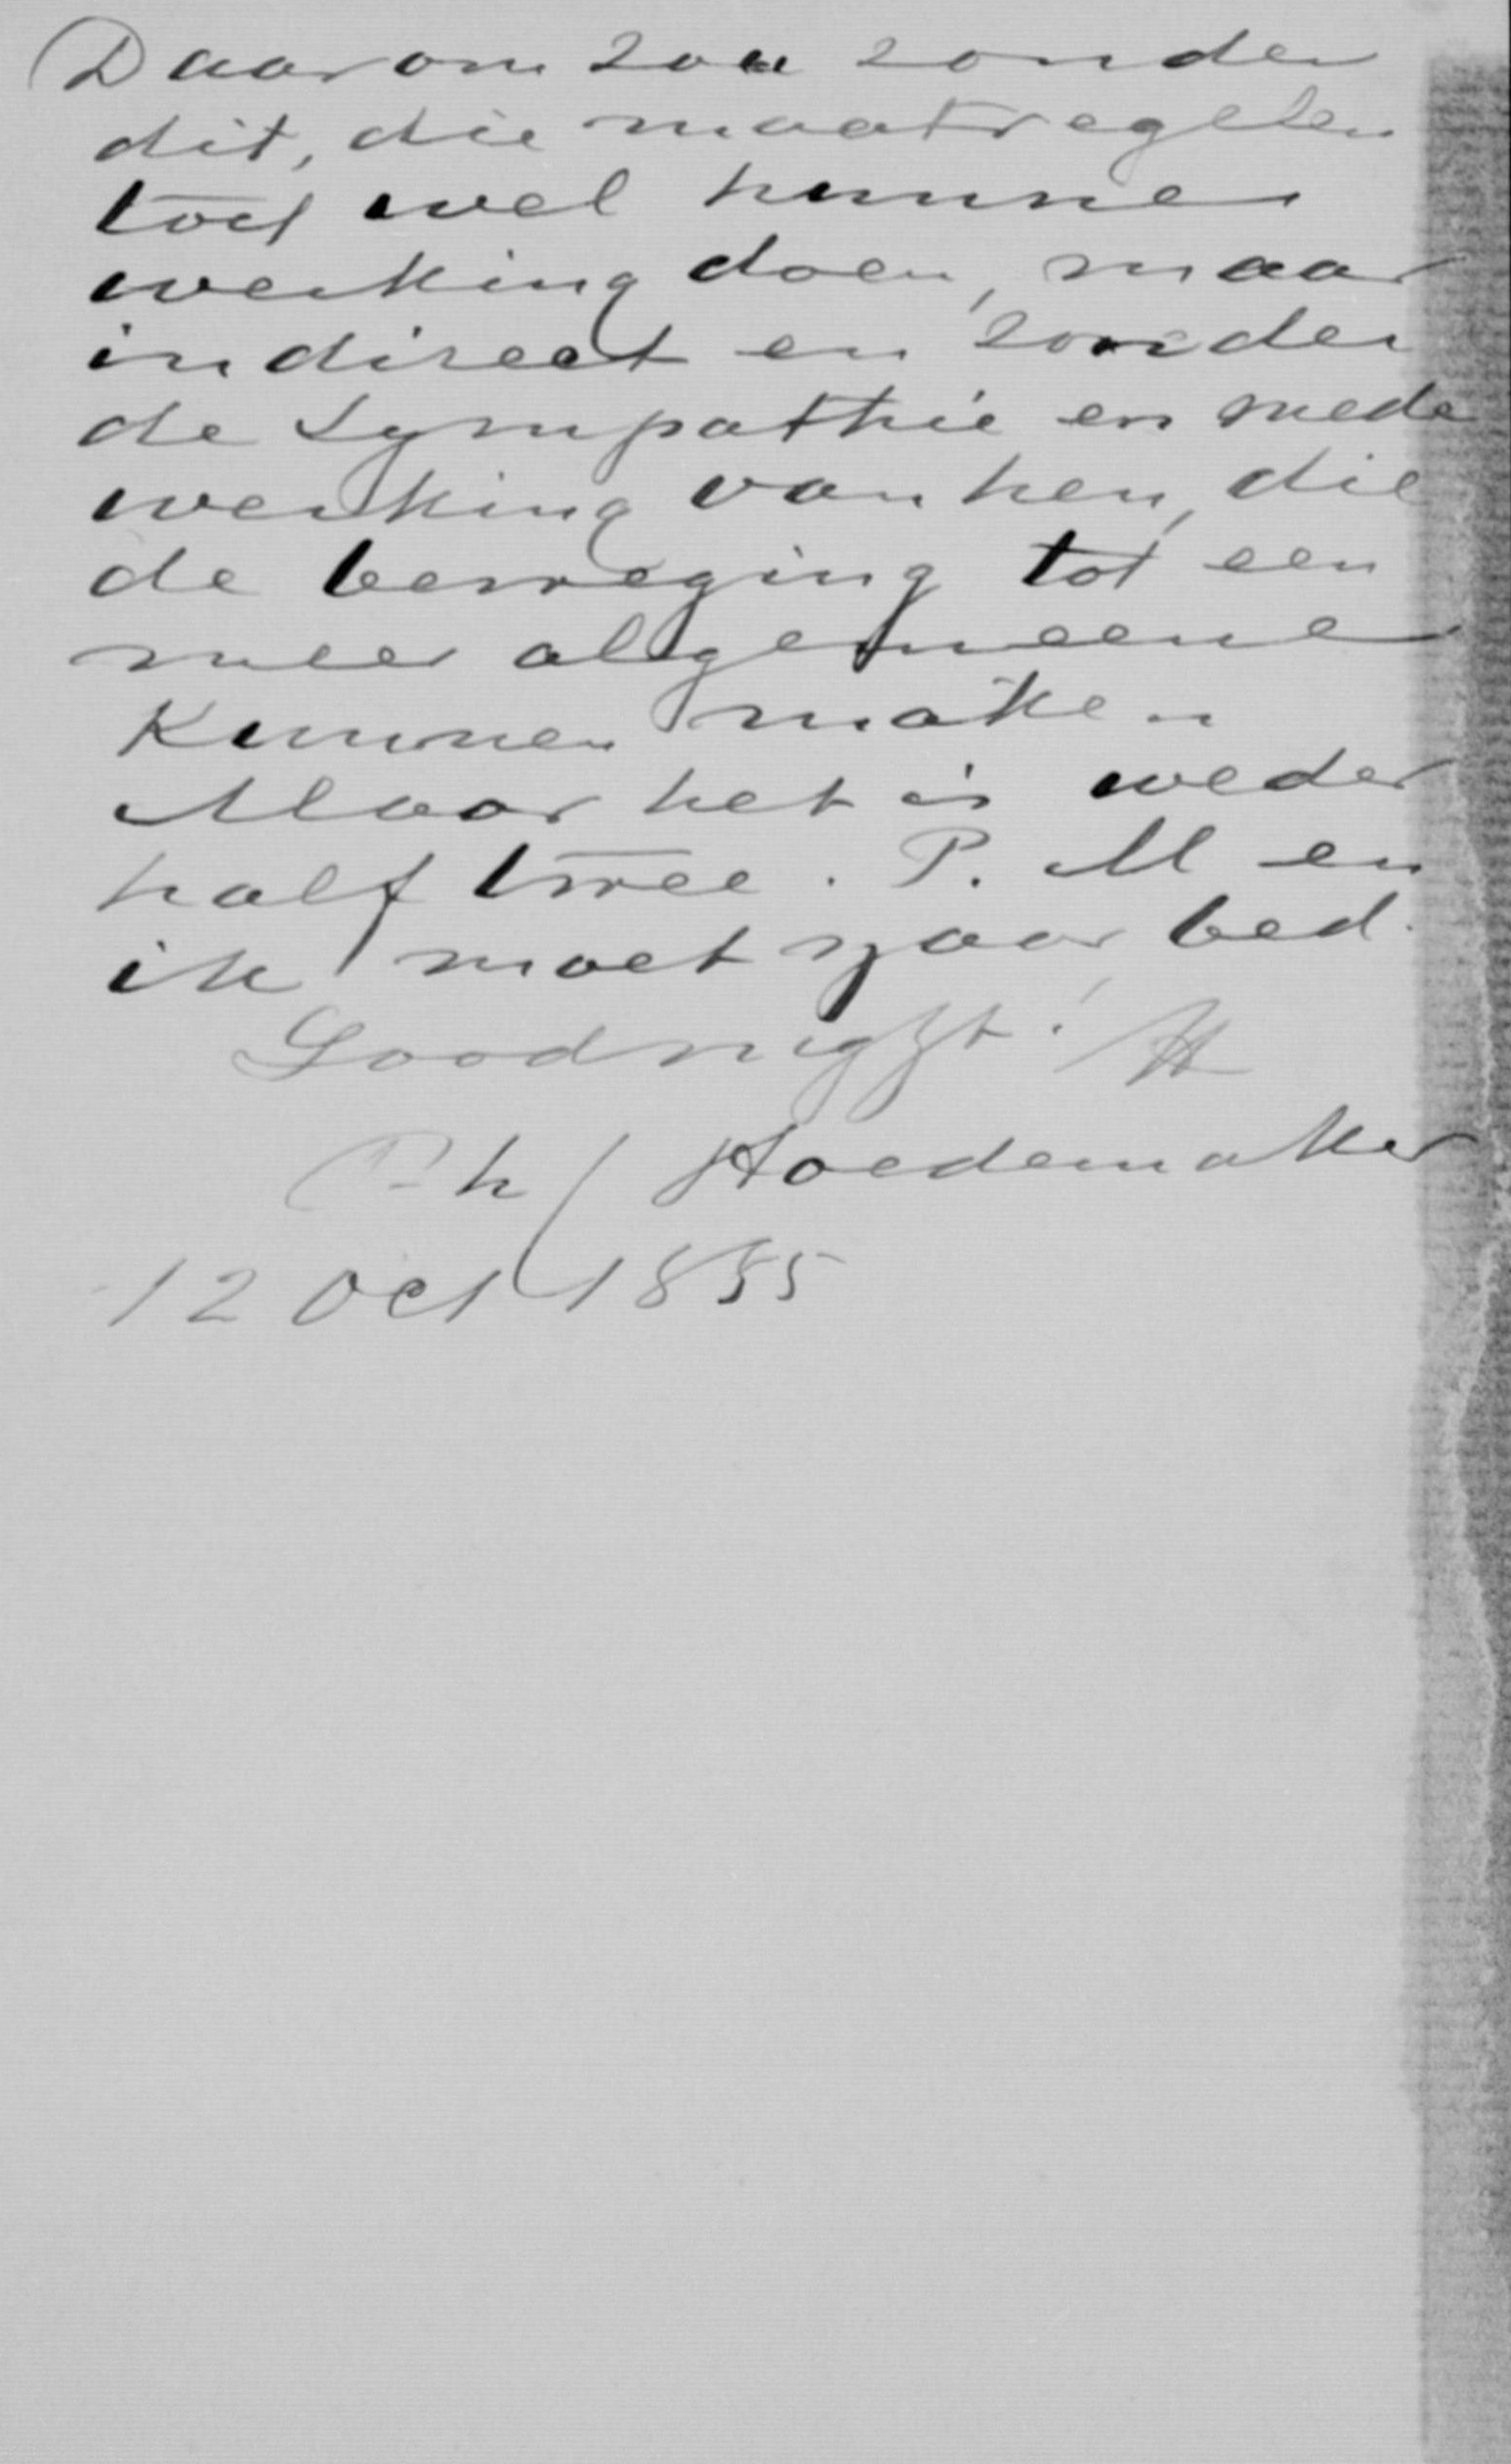 Daarom zou zonder
dit, die maatregelen
toch wel hunne
werking doen, maar
indirect en zonder
de sympathie en mede
werking van hen, die
de beweging tot een
meer algemeene
kunnen maken
Maar het is weder
half twee. P. M en
ik moet naar bed.
Goodnight! tt
Ph J Hoedemaker
12 Oct 1885